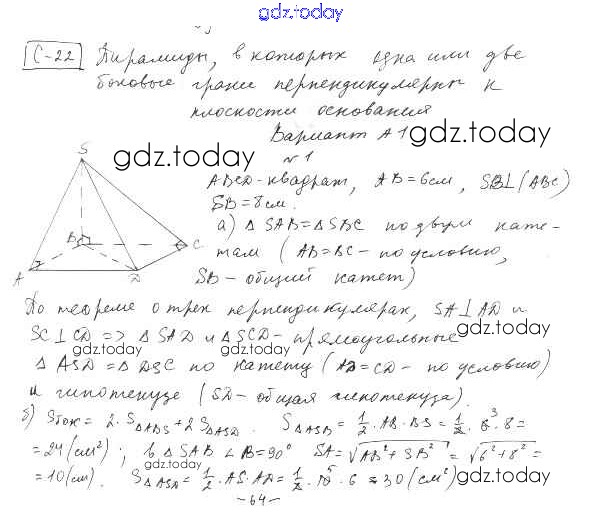 gdz.today
С-22 Пирамиды, в которых одна или две
боковые грани перпендикулярны к
плоскости основания
Вариант А1 gdz.today
gdz.today
№1
ABCD-квадрат, AB=6см, SB⊥(ABC)
SB=8см.
а) △SAB=△SBC по двум кате-
там (AB=BC - по условию,
SB - общий катет)
S
B
C
A
D
По теореме о трех перпендикулярах, SA⊥AD и
gdz.today
SC⊥CD => △SAD и △SCD - прямоугольные
gdz.today gdz.today
△ASD=△DSC по катету (AD=CD - по условию)
и гипотенузе (SD - общая гипотенуза).
gdz.today
б) Sбок = 2·S△ABS+2S△ASD. S△ASB = 1/2·AB·BS = 1/2·6³·8=
=24(см²); в △SAB ∠B=90° SA=√AB²+SB² = √6²+8² =
gdz.today
=10(см). S△ASD = 1/2·SA·AD = 1/2·10⁵·6=30(см²)
gdz.today
-64-